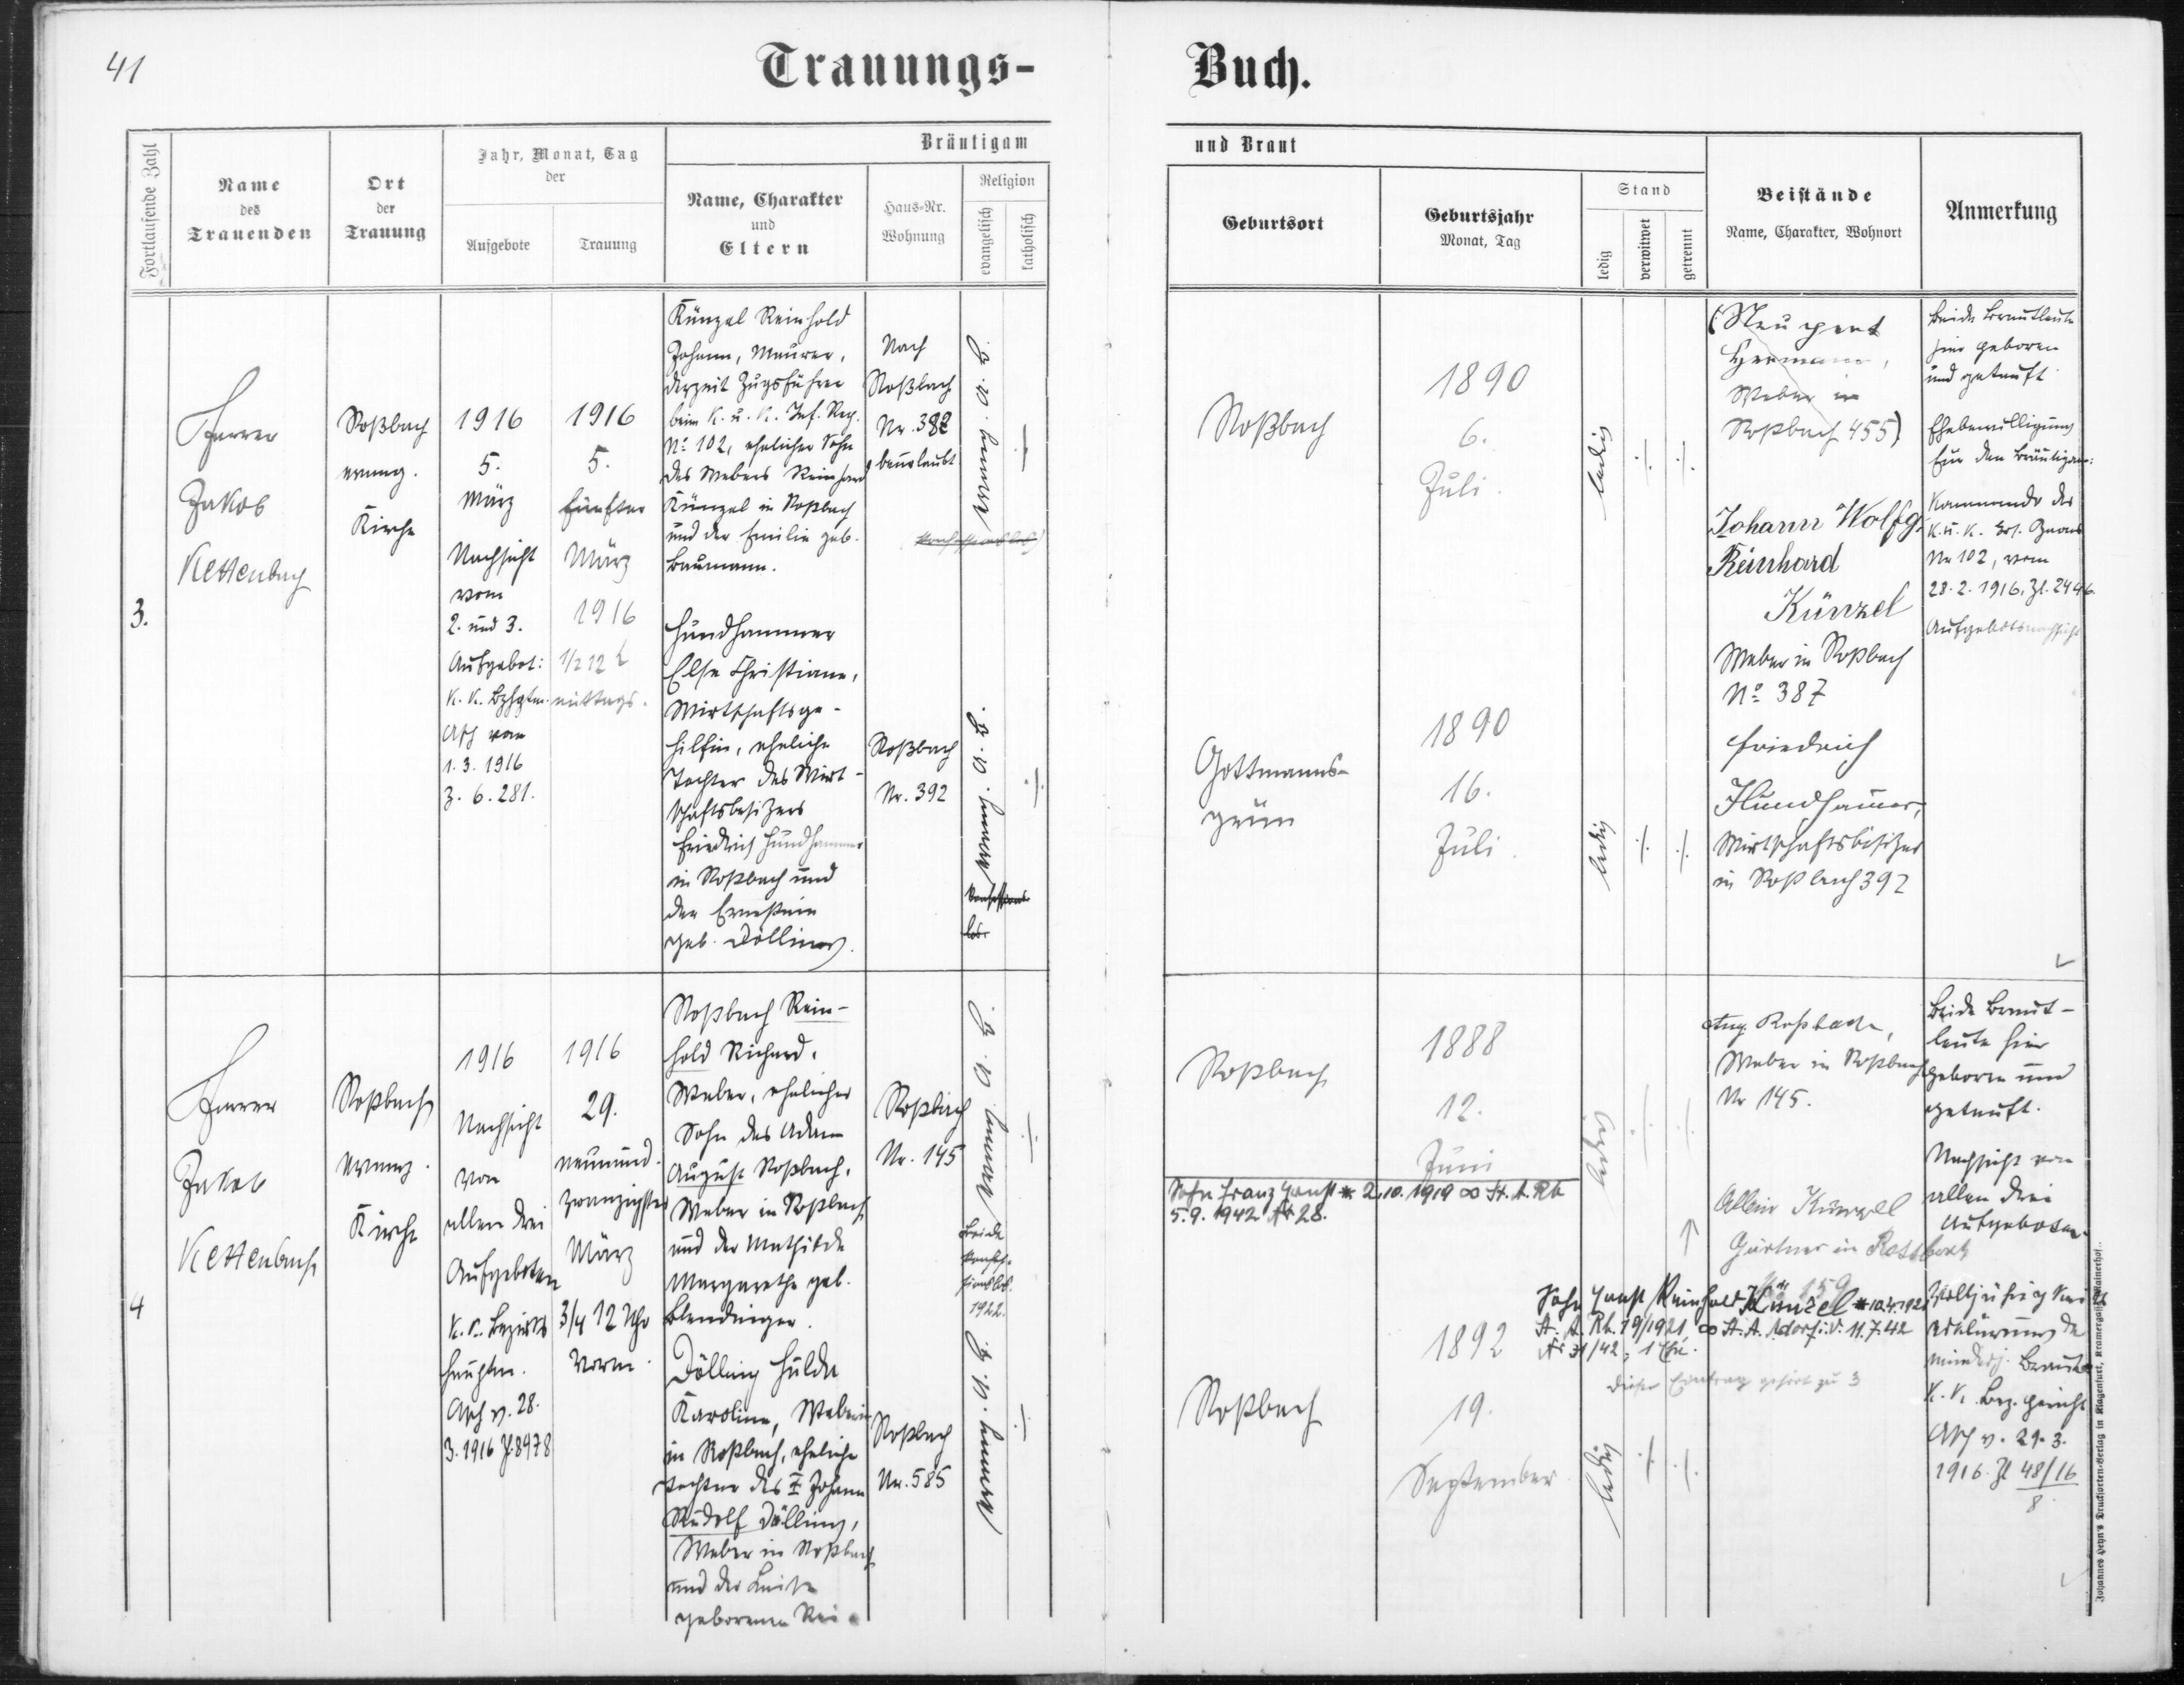 41
Trauungs-
Buch.
Fortlaufende Zahl
Name
des
Trauenden
Ort
der
Trauung
Jahr, Monat, Tag
der
Aufgebote
Trauung
Bräutigam
Name, Charakter
und
Eltern
Haus-Nr.
Wohnung
Religion
evangelisch
katholisch
und Braut
Geburtsort
Geburtsjahr
Monat, Tag
Stand
ledig
verwitwet
getrennt
Beistände
Name, Charakter, Wohnort
Anmerkung
3.
Pfarrer
Jakob
Kettenbach
Roßbach
evang.
Kirche
1916
5.
März
Nachsicht
vom
2. und 3.
Aufgebot:
k. k. Bzhptm.
Asch vom
1. 3. 1916
Z. 6.281.
1916
5.
fünfter
März
1916
1/2 12 h
mittags.
Künzel Reinhold
Johann, Maurer,
derzeit Zugsführer
beim k. u. k. Inf. Reg.
No 102, ehelicher Sohn
des Webers Reinhard
Künzel in Roßbach
und der Emilie geb.
Baumann.
Hundhammer
Else Christiane,
Wirtschaftsge-
hilfin, eheliche
Tochter des Wirt-
schaftsbesitzers
Friedrich Hundhammer
in Roßbach und
der Ernestine
geb. Dölling.
Nach
Roßbach
Nr. 382
beurlaubt
Roßbach
Nr. 392
Roßbach
1890
6.
Juli.
ledig
Gottmanns-
grün
1890
16.
Juli.
ledig
Hermann,
Weber in
Roßbach 455)
Johann Wolfg.
Reinhard
Künzel
Weber in Roßbach
No 387
Friedrich
Hundhammer,
Wirtschaftsbesitzer
in Roßbach 392
Beide Brautleute
hier geboren
und getauft.
Ehebewilligung
für den Bräutigam:
Kommando des
k. u. k.
Nr 102, vom
28. 2. 1916, Zl. 2446.
Aufgebotsnachsicht
4
Pfarrer
Jakob
Kettenbach
Roßbach
evang.
Kirche
1916
Nachsicht
von
allen drei
Aufgeboten
k. k. Bezirks
hauptm.
Asch v. 28.
3. 1916 Z. 8978
1916
29.
neunund-
zwanzigster
März
3/4 12 Uhr
Vorm.
Roßbach Rein-
hold Richard,
Weber, ehelicher
Sohn des Adam
August Roßbach,
Weber in Roßbach
und der Mathilde
Margarethe geb.
Blendinger.
Dölling Hulda
Karoline, Weberin
in Roßbach, eheliche
Tochter des Johann
Rudolf Dölling,
Weber in Roßbach
und der Luise
geborenen
Roßbach
Nr. 145
Roßbach
Nr. 585
Beide
konfes-
sionslos.
1922.
Roßbach
1888
12.
Juni
ledig
Sohn Franz Horst * 2. 10. 1919 ∞ St. A. Rb
5. 9. 1942 Nr 28.
Roßbach
1892
19.
September
ledig
Aug. Roßbach,
Weber in Roßbach
Nr 145.
Albin Künzel
Gärtner in Rossbach
Nr 159
Sohn Horst Reinhold Künzel
St. A. Rb. 19/1921, ∞ St. A. Adorf i. V. 11. 7. 42
Dieser Eintrag gehört zu 3
Beide Braut-
leute hier
geboren und
getauft.
Nachsicht von
allen drei
Aufgeboten.
Volljährigkeits
erklärung der
minderj. Braut
k. k. Bez. gericht
Asch v. 29. 3.
1916. Zl 48/16
8.
Johannes Heyn's Drucksorten-Verlag in Klagenfurt, Kramergasse, Mainerhof.